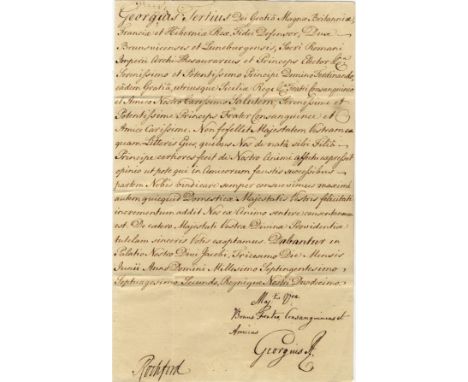 Georgius Tertius Dei Gratiâ Magnæ Britanniæ,
Franciæ et Hiberniæ Rex, Fidei Defensor, Dux
Brunsvicensis et Luneburgensis, Sacri Romani
Imperii Archi-Thesaurarius et Princeps Elector &ca
Serenissimo et Potentissimo Principi Domino Ferdinando,
eâdem Gratiâ, utriusque Siciliæ Rege &ca Fratri Consanguineo
et Amico Nostro Carissimo Salutem, Serenissime et
Potentissime Princeps Frater Consanguinee et
Amice Carissime. Non fefellit Majestatem Vestram ea
quam Litteris Ejus, quibus Nos de natâ sibi Filiâ
Principe certiores fecit de Nostro Animo affectu expressit
opinio ut pote qui in Amicorum faustis successibus
partem Nobis vindicare semper consuevimus
autem quicquid Domesticæ Majestatis Vestris felicitati
incrementum addit Nos ex Animo sentire
est. De cætero Majestati Vestræ Divinæ Providentiæ
tutelam sinceris Votis exoptamus. Dabantur in
Palatio Nostro Divi Jacobi, Tricesimo Die Mensis
Junii, Anno Domini Millesimo Septingentesimo,
Septuagesimo Secundo, Regnique Nostri Duodecimo.
Maj. E. Vræ
Bonus Frater Consanguineus et
Amicus
Georgius R.
Rochford